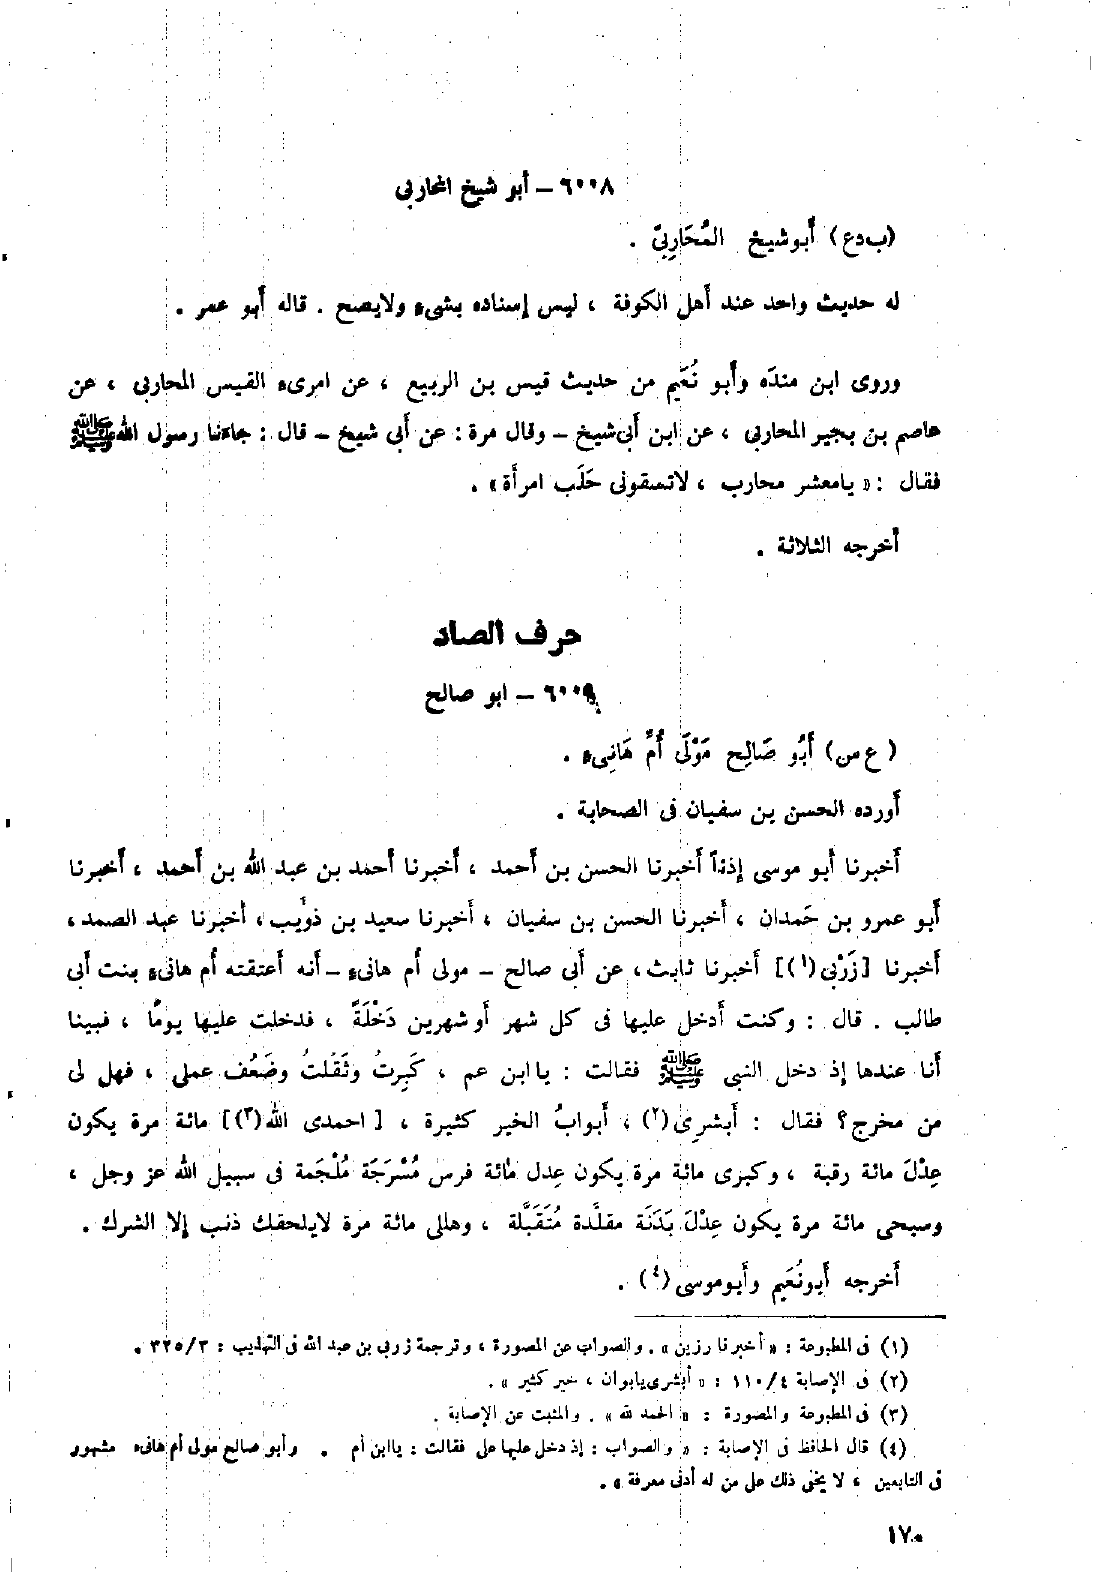 ٦٠٠٨ – أبو شيخ المحاربى
(ب‌دع) أبو شيخ المُحَارِبىّ .
له حديث واحد عند أهل الكوفة ، ليس إسناده بشىء ولايصح . قاله أبو عمر .
وروى ابن منده وأبو نُعَيم من حديث قيس بن الربيع ، عن امرىء القيس المحاربى ، عن
عاصم بن بجير المحاربى ، عن ابن أبى‌شيخ – وقال مرة : عن أبى شيخ – قال : جاءنا رسول الله ﷺ
فقال : « يامعشر محارب ، لاتسقونى حَلَب امرأة » .
أخرجه الثلاثة .
حرف الصاد
٦٠٠٩ – ابو صالح
( ع‌س) أَبُو صَالِح مَوْلَى أُمِّ هَانِىء .
أورده الحسن بن سفيان فى الصحابة .
أخبرنا أبو موسى إذناً أخبرنا الحسن بن أحمد ، أخبرنا أحمد بن عبد الله بن أحمد ، أخبرنا
أبو عمرو بن حَمدان ، أخبرنا الحسن بن سفيان ، أخبرنا سعيد بن ذوَيب ، أخبرنا عبد الصمد ،
أخبرنا [زَرْبى(١)] أخبرنا ثابث ، عن أبى صالح – مولى أم هانىء – أنه أعتقته أم هانىء بنت أبى
طالب . قال : وكنت أدخل عليها فى كل شهر أو شهرين دَخْلَةً ، فدخلت عليها يومًا ، فبينا
أنا عندها إذ دخل النبى ﷺ فقالت : يا ابن عم ، كَبِرتُ وثَقُلتُ وضَعُف عملى ، فهل لى
من مخرج؟ فقال : أبشرِى(٢) ، أبوابُ الخير كثيرة ، [ احمدى الله(٣)] مائة مرة يكون
عِدْلَ مائة رقبة ، وكبرى مائة مرة يكون عِدل مائة فرس مُسْرَجَة مُلْجَمة فى سبيل الله عز وجل ،
وسبحى مائة مرة يكون عِدْلَ بَدَنَة مقلَّدة مُتَقَبَّلة ، وهللى مائة مرة لايلحقك ذنب إلا الشرك .
أخرجه أبونُعَيم وأبوموسى(٤) .
(١) فى المطبوعة : « أخبرنا رزين » . والصواب عن المصورة ، وترجمة زربى بن عبد الله فى التهذيب : ٣٢٥/٣ .
(٢) فى الإصابة ١١٠/٤ : « أبشرى يابوان ، خير كثير » .
(٣) فى المطبوعة والمصورة : « الحمد لله » . والمثبت عن الإصابة .
(٤) قال الحافظ فى الإصابة : « والصواب : إذ دخل عليها على فقالت : يا ابن أم . وأبو صالح مولى أم هانىء مشهور
فى التابعين ، لا يخفى ذلك على من له أدنى معرفة » .
١٧٠